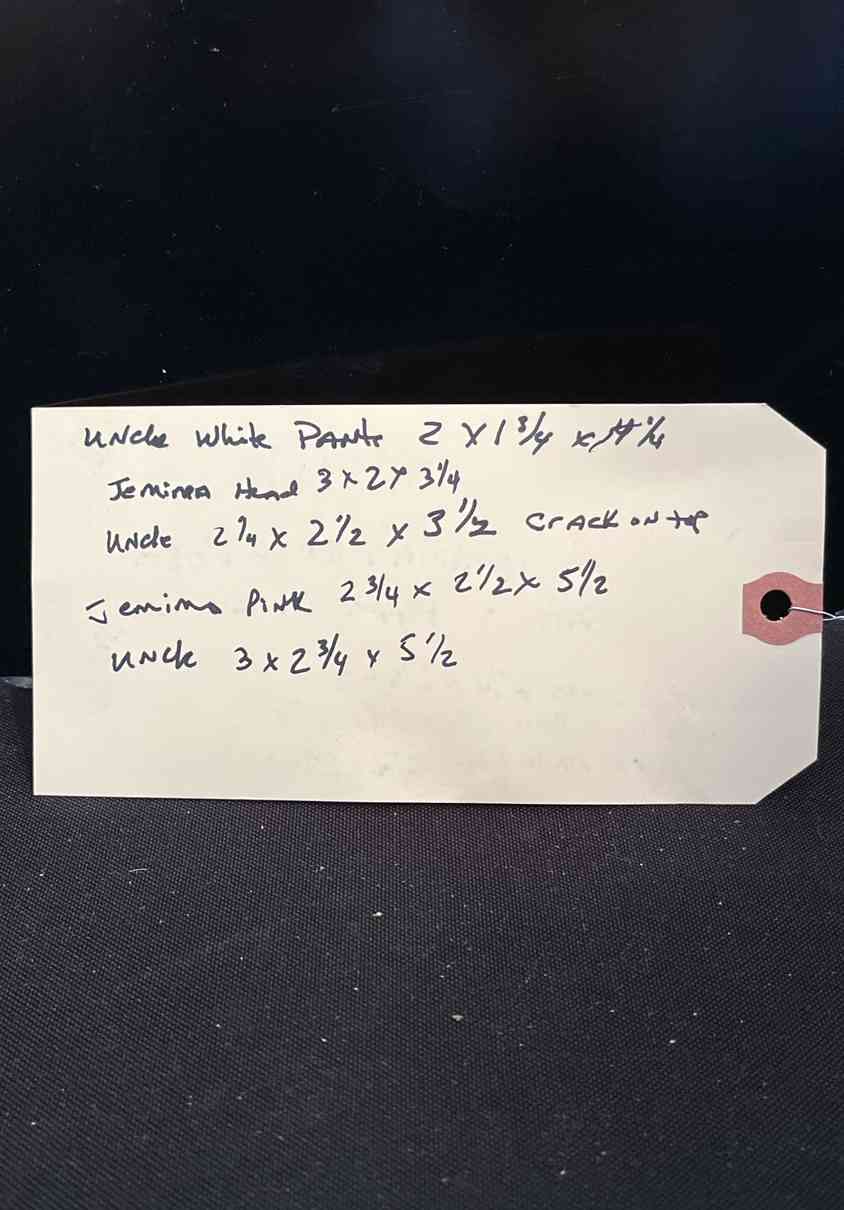 Uncle White Pants 2 x 1 3/4 x 4 1/4
Jemima Head 3 x 2 x 3 1/4
Uncle 2 1/4 x 2 1/2 x 3 1/2 crack on top
Jemima Pink 2 3/4 x 2 1/2 x 5 1/2
Uncle 3 x 2 3/4 x 5 1/2